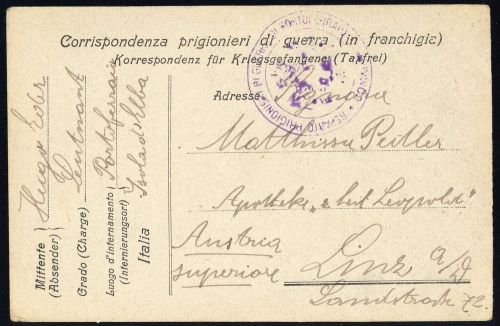 Corrispondenza prigionieri di guerra (in franchigia)
Korrespondenz für Kriegsgefangene (Taxfrei)
Adresse
Signora
Apotheke
Leopold"
Austria
superiore
Linz a/D
Landstraße 72.
Mittente
(Absender)
Hugo
Grado (Charge)
Leutnant
Luogo d'internamento
(Internierungsort)
Portoferraio
Isola d'Elba
Italia
REPARTO PRIGIONIERI DI GUERRA
PORTOFERRAIO